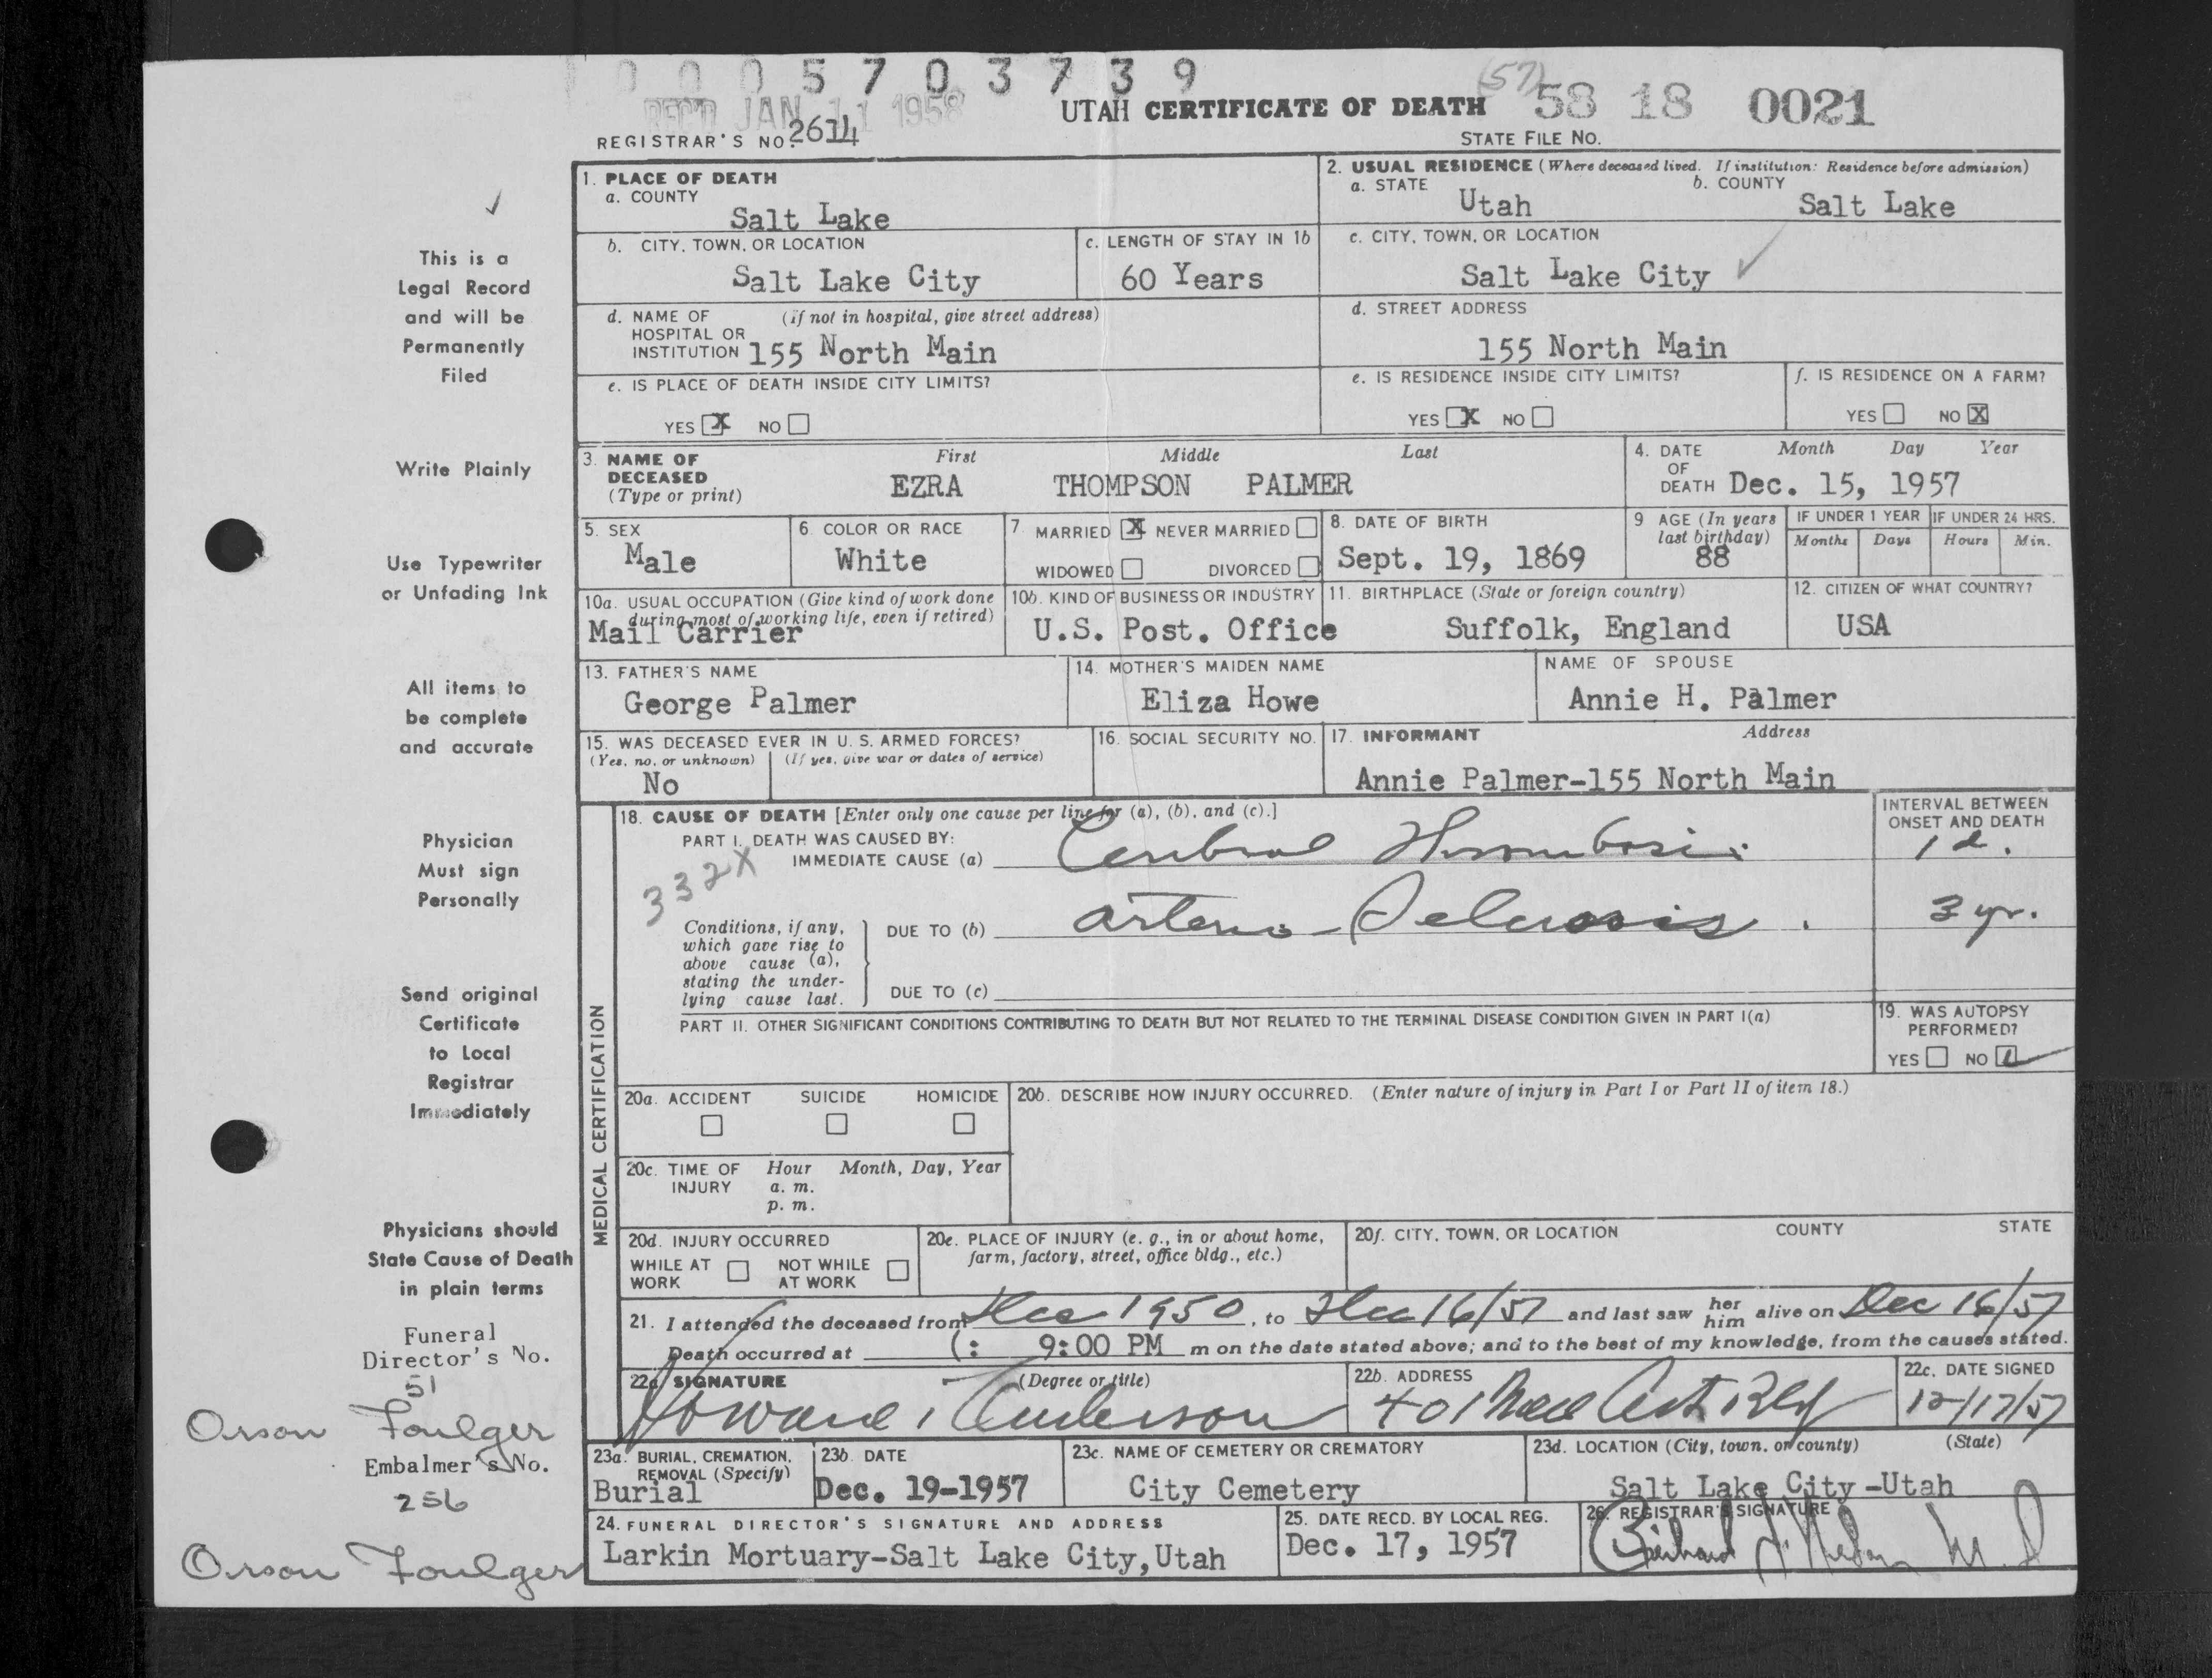 0005703739
REC'D JAN 11 1958
(57) 58 18 0021
UTAH CERTIFICATE OF DEATH
REGISTRAR'S NO. 2614
STATE FILE NO.
This is a
Legal Record
and will be
Permanently
Filed
Write Plainly
Use Typewriter
or Unfading Ink
All items to
be complete
and accurate
Physician
Must sign
Personally
Send original
Certificate
to Local
Registrar
Immediately
Physicians should
State Cause of Death
in plain terms
Funeral
Director's No.
51
Orson Foulger
Embalmer's No.
256
Orson Foulger
1. PLACE OF DEATH
a. COUNTY
Salt Lake
b. CITY, TOWN, OR LOCATION
Salt Lake City
c. LENGTH OF STAY IN 1b
60 Years
d. NAME OF (If not in hospital, give street address)
HOSPITAL OR
INSTITUTION 155 North Main
e. IS PLACE OF DEATH INSIDE CITY LIMITS?
YES X NO
2. USUAL RESIDENCE (Where deceased lived. If institution: Residence before admission)
a. STATE
Utah
b. COUNTY
Salt Lake
c. CITY, TOWN, OR LOCATION
Salt Lake City
d. STREET ADDRESS
155 North Main
e. IS RESIDENCE INSIDE CITY LIMITS?
YES X NO
f. IS RESIDENCE ON A FARM?
YES NO X
3. NAME OF
DECEASED
(Type or print)
First Middle Last
EZRA THOMPSON PALMER
4. DATE
OF
DEATH
Month Day Year
Dec. 15, 1957
5. SEX
Male
6. COLOR OR RACE
White
7. MARRIED X NEVER MARRIED
WIDOWED DIVORCED
8. DATE OF BIRTH
Sept. 19, 1869
9 AGE (In years
last birthday)
88
IF UNDER 1 YEAR
Months Days
IF UNDER 24 HRS.
Hours Min.
10a. USUAL OCCUPATION (Give kind of work done
during most of working life, even if retired)
Mail Carrier
10b. KIND OF BUSINESS OR INDUSTRY
U.S. Post. Office
11. BIRTHPLACE (State or foreign country)
Suffolk, England
12. CITIZEN OF WHAT COUNTRY?
USA
13. FATHER'S NAME
George Palmer
14. MOTHER'S MAIDEN NAME
Eliza Howe
NAME OF SPOUSE
Annie H. Palmer
15. WAS DECEASED EVER IN U. S. ARMED FORCES?
(Yes, no, or unknown) (If yes, give war or dates of service)
No
16. SOCIAL SECURITY NO.
17. INFORMANT Address
Annie Palmer-155 North Main
MEDICAL CERTIFICATION
18. CAUSE OF DEATH [Enter only one cause per line for (a), (b), and (c).]
PART I. DEATH WAS CAUSED BY:
IMMEDIATE CAUSE (a) Cerebral Thrombosis
332X
Conditions, if any,
which gave rise to
above cause (a),
stating the under-
lying cause last.
DUE TO (b) Arterio-Sclerosis.
DUE TO (c)
INTERVAL BETWEEN
ONSET AND DEATH
1 d.
3 yr.
PART II. OTHER SIGNIFICANT CONDITIONS CONTRIBUTING TO DEATH BUT NOT RELATED TO THE TERMINAL DISEASE CONDITION GIVEN IN PART I(a)
19. WAS AUTOPSY
PERFORMED?
YES NO
20a. ACCIDENT SUICIDE HOMICIDE
20b. DESCRIBE HOW INJURY OCCURRED. (Enter nature of injury in Part I or Part II of item 18.)
20c. TIME OF Hour Month, Day, Year
INJURY a. m.
p. m.
20d. INJURY OCCURRED
WHILE AT WORK
NOT WHILE AT WORK
20e. PLACE OF INJURY (e. g., in or about home,
farm, factory, street, office bldg., etc.)
20f. CITY, TOWN, OR LOCATION COUNTY STATE
21. I attended the deceased from Dec 1950, to Dec 16/57 and last saw her him alive on Dec 16/57
Death occurred at 9:00 PM m on the date stated above; and to the best of my knowledge, from the causes stated.
22a. SIGNATURE (Degree or title)
Howard Anderson
22b. ADDRESS
401 Med Arts Bldg
22c. DATE SIGNED
12/17/57
23a. BURIAL, CREMATION,
REMOVAL (Specify)
Burial
23b. DATE
Dec. 19-1957
23c. NAME OF CEMETERY OR CREMATORY
City Cemetery
23d. LOCATION (City, town, or county) (State)
Salt Lake City-Utah
24. FUNERAL DIRECTOR'S SIGNATURE AND ADDRESS
Larkin Mortuary-Salt Lake City, Utah
25. DATE RECD. BY LOCAL REG.
Dec. 17, 1957
26. REGISTRAR'S SIGNATURE
M D